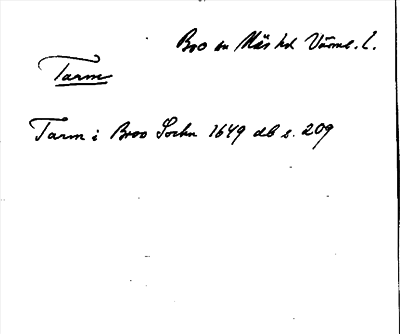 Bro sn Näs hd Värml. l.
Tarm
Tarm i Broo Sockn 1649 db s. 209